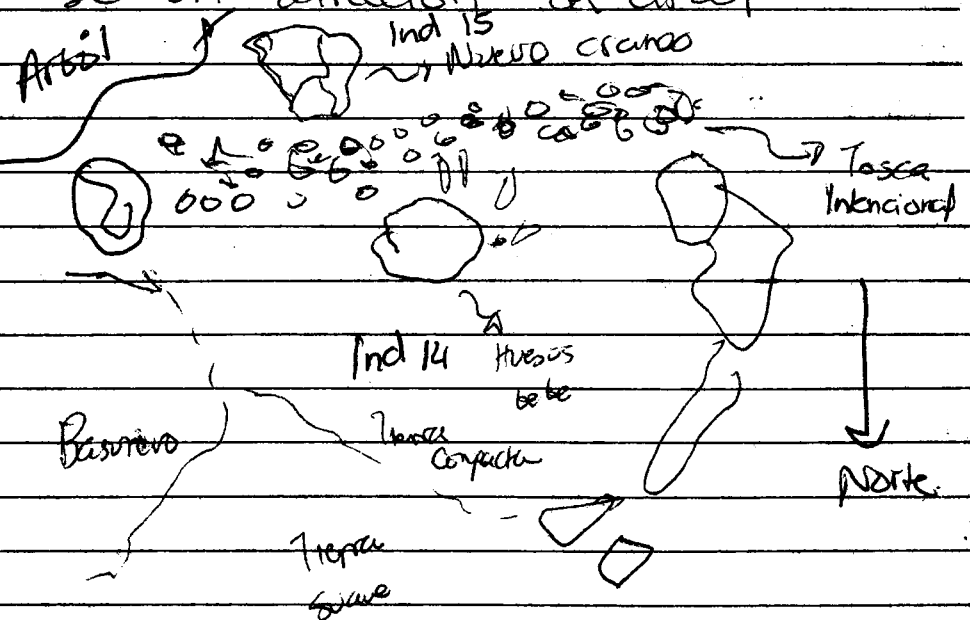 Arbol
Ind 15
Nuevo craneo
Tosca
Intencional
Ind 14
Huesos
bebe
Basurero
Tierra
Compacta
Norte.
Tierra
suave